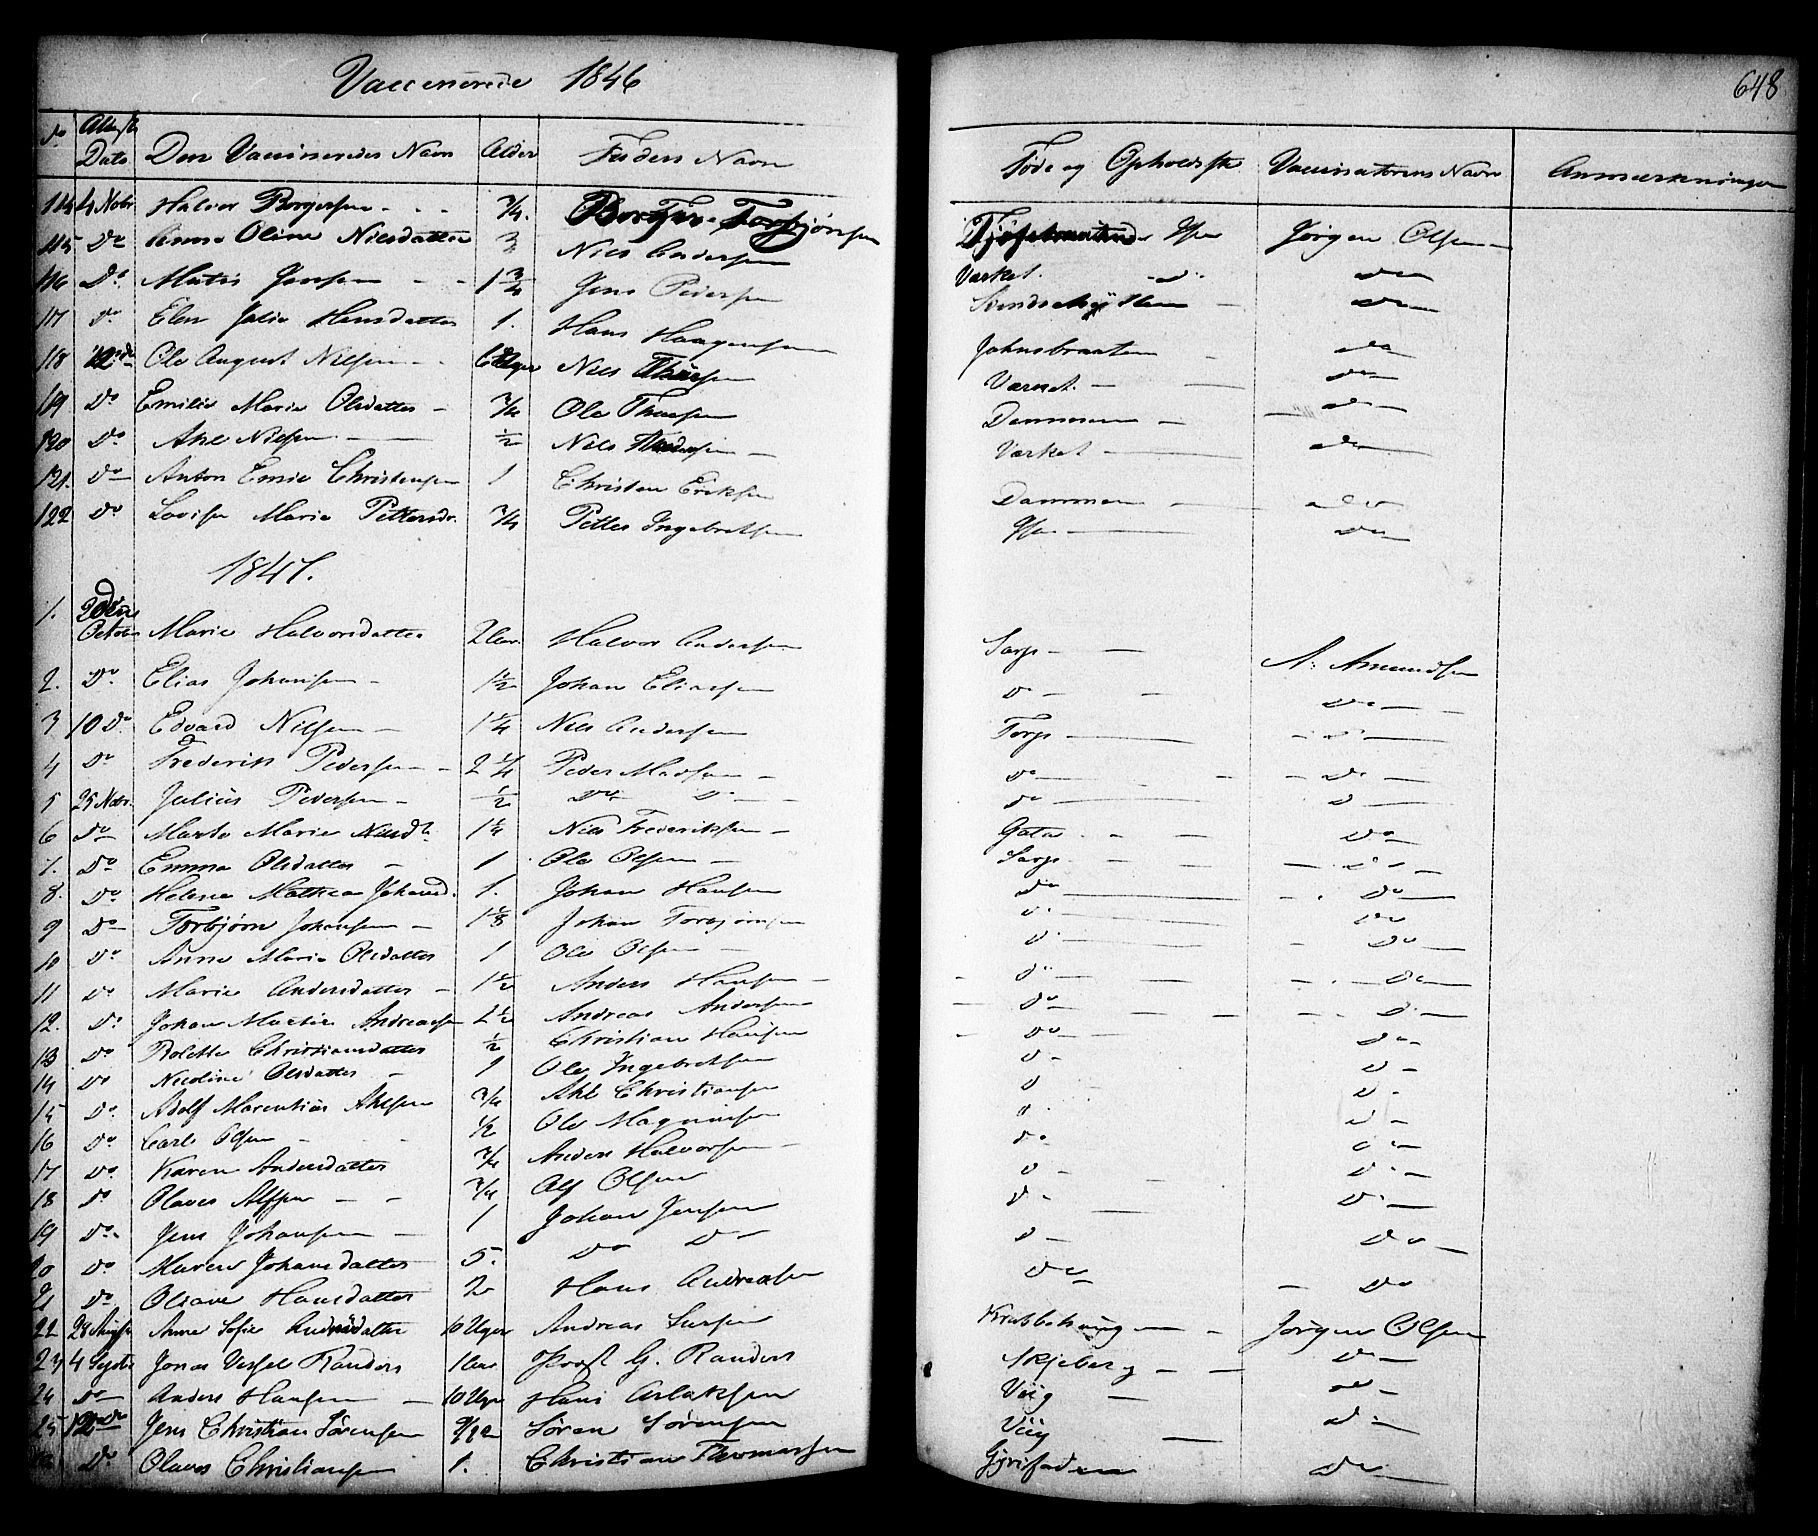 Vaccinerede 1846
648
No Attest Dato Den Vaccineredes Navn Alder Faders Navn Føde og Opholdsste Vaccinatorens Navn Anmærkninger
114 4 Nobr Halvor Borgersen 3/4. Borger Torbjørnsen Ysen Jørgen Olsen
115 Do Anne Oline Nilsdatter 3/4 Nils Andersen Værket do
116 Do Jensen 1 3/4 Jens Pedersen do
117 Do Elen Julie Hansdatter 1. Hans Haagensen Johnsbraaten do
118 12 do Ole August Nilsen 6 Uger Nils Værket do
119 Do Emilie Marie Olsdatter 3/4 Ole Dammen do
120 Do Axel Nilsen 1/2 Nils Værket do
121. Do Anton Emil Christensen 1 Christen Eriksen Dammen do
122 Do Lovise Marie Pettersdr. 3/4 Petter Ingebretsen Ysen do
1847.
1. October Marie Halvorsdatter 2 Aar Halvor Andersen Sarps A. Amundsen
2. Do. Elias Johansen 1 1/2 Johan Eliassen do do
3 10 Do Edvard Nilsen 1 1/4 Nils Andersen Torps do
4 Do Frederik Pedersen 2 1/4 Peder Madsen do do
5 25 Nobr. Julius Pedersen 1/2 Do Do do do
6 Do Marte Marie Nilsd. 1 1/4 Nils Frederiksen Gata do
7. Do Emma Olsdatter 1 Ole Olsen Sarps do
8. Do Helene Mathea Johansd. 1. Johan Hansen do do
9 Do Torbjørn Johansen 1 1/8 Johan Torbjørnsen do do
10 Do Anne Maria Olsdatter 1 Ole Olsen do do
11 Do Marie Andersdatter 1 1/2 Anders Hansen do do
12. Do Johan Martin Andreassen 2 1/2 Andreas Andersen do do
13 Do Bolette Christiansdatter 1/2 Christian Hansen do do
14 Do Nicoline Olsdatter 1 Ole Ingebretsen do do
15 Do. Adolf Marentius Axelsen 3/4 Axel Christiansen do do
16 Do Carl Olsen 1/2 Ole Magnusen do do
17 Do. Karen Andersdatter 3/4 Anders Halvorsen do do
18 Do Olaves Alfsen 3/4 Alf Olsen do do
19 Do. Jens Johansen 1 Johan Jensen do do
20 Do. Maren Johansdatter 5. Do Do do do
21 Do Oliave Hansdatter 2 Hans Andreasen do do
22 28 August Anne Sofie 10 Uger Andreas Jørgen Olsen
23 4 Septbr Jonas Vessel Randers 1 Aar Provst G. Randers Skjeberg do
24 Do Anders Hansen 10 Uger Hans Aslaksen Viig do
25 12 do Jens Christian Sørensen 9/12 Søren Sørensen Viig do
Do Olaves Christiansen 1. Christian Thomassen do